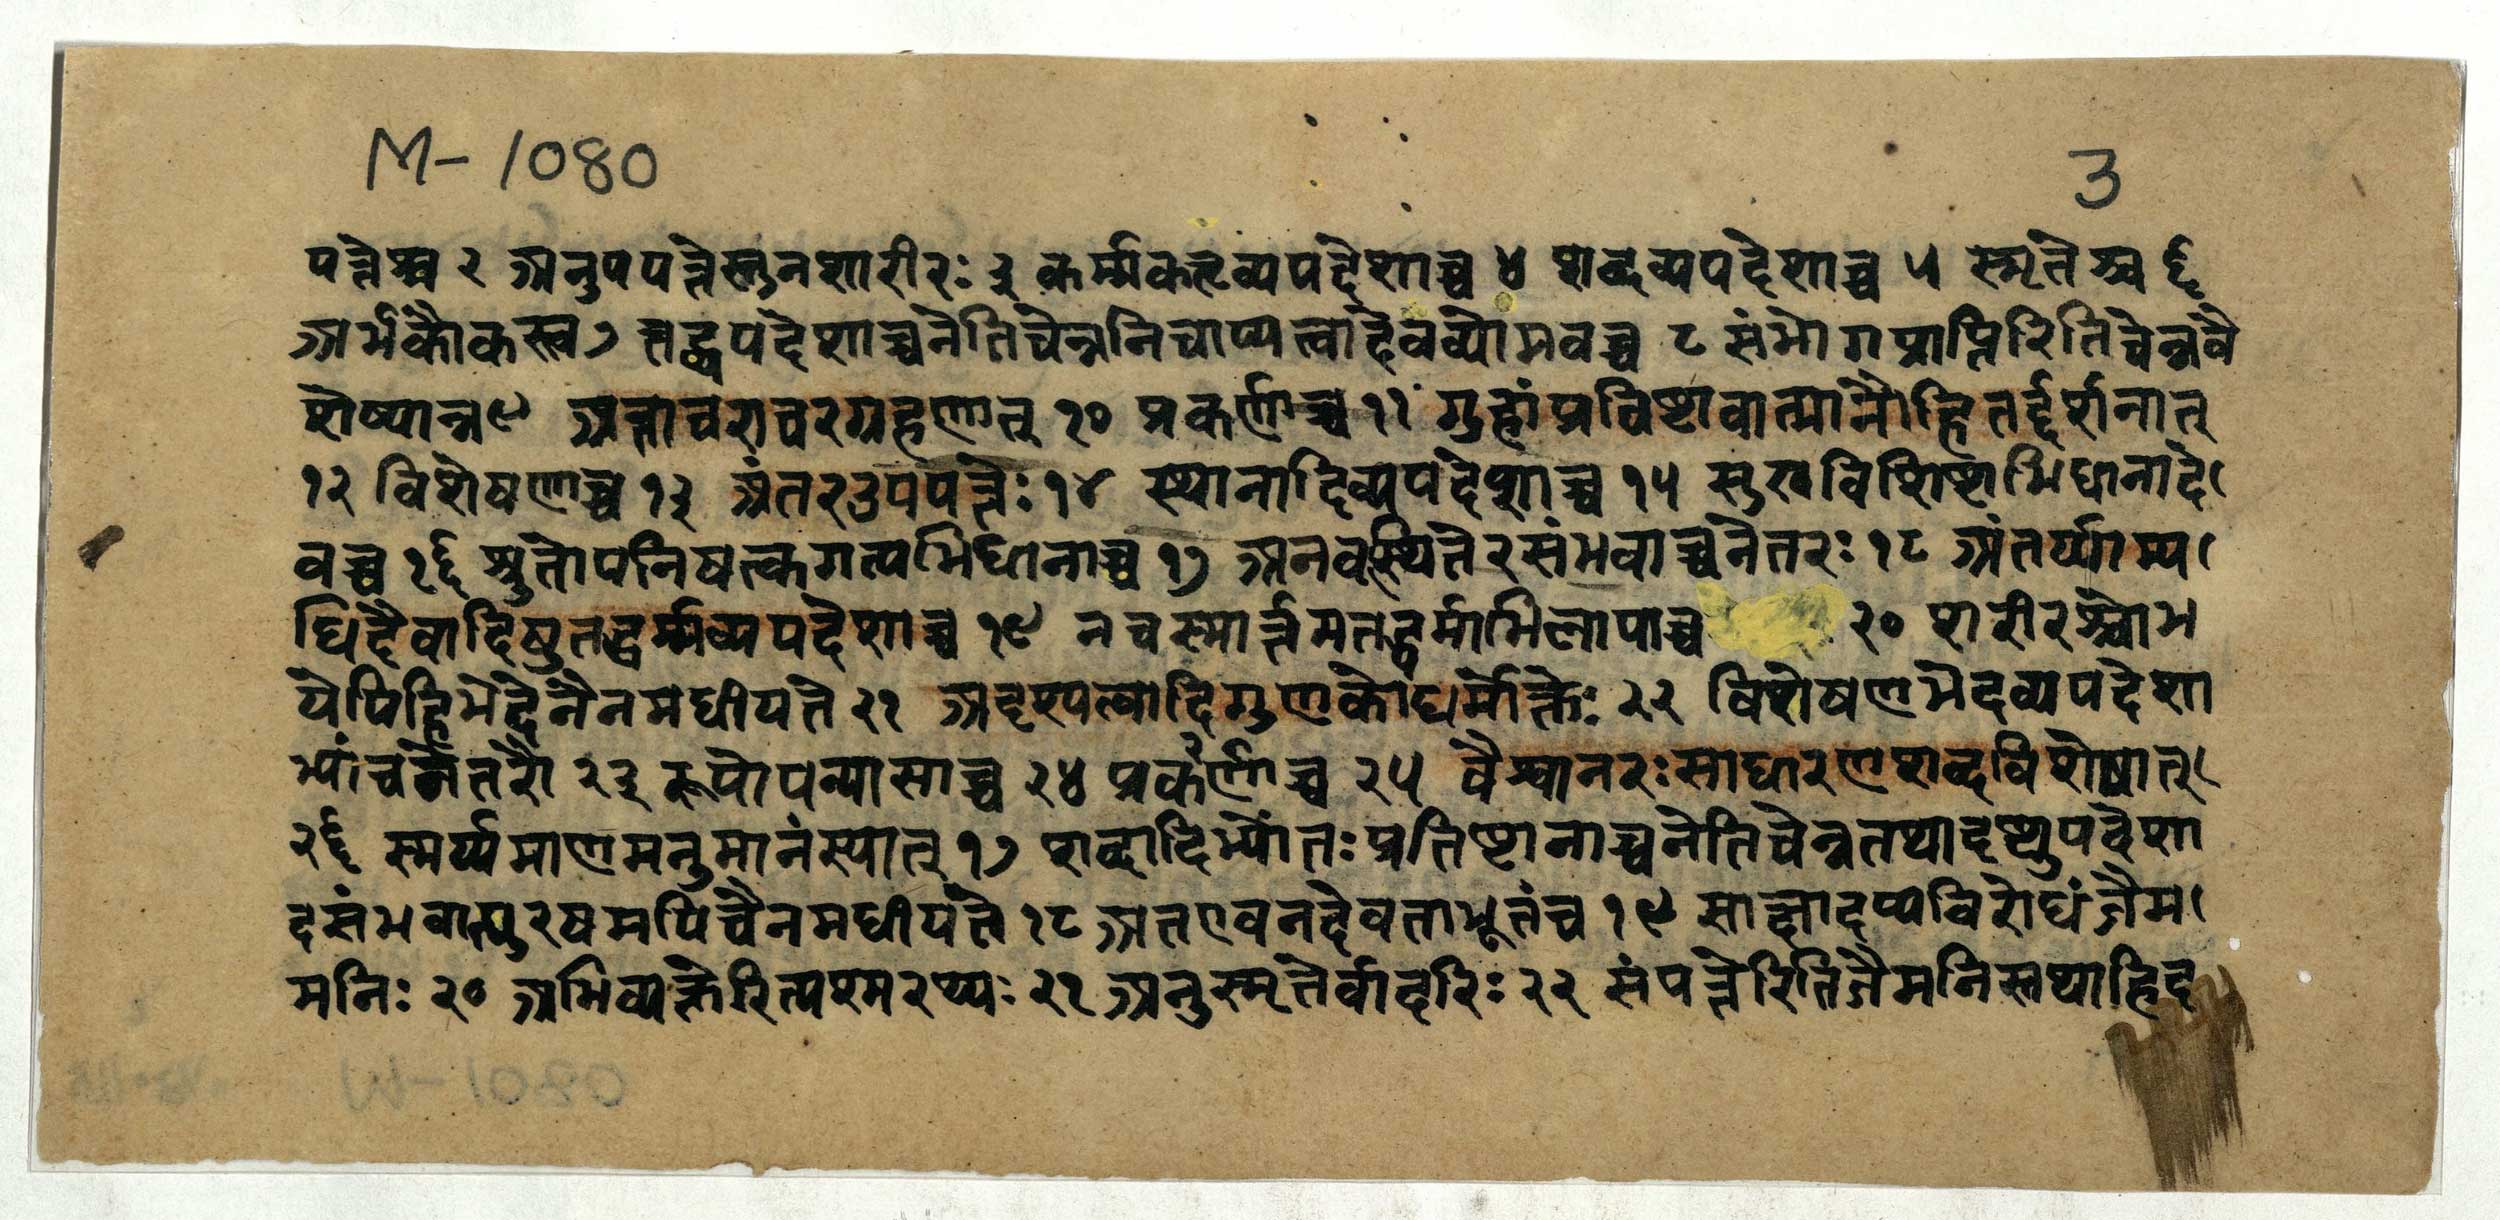 M-1080
3
पत्तेश्च २ अनुपपत्तेस्तुनशारीरः ३ कर्म्मकर्तृव्यपदेशाच्च ४ शब्दव्यपदेशाच्च ५ स्मृतेश्च ६
अर्भकौकस्त्व ७ त्तद्व्यपदेशाच्चनेतिचेन्ननिचाय्यत्वादेवंव्योमवच्च ८ संभोगप्राप्तिरितिचेन्नवै
शेष्यान्न ९ अत्ताचराचरग्रहणात् १० प्रकर्णाच्च ११ गुहांप्रविष्टावात्मानौहितर्द्दर्शनात्
१२ विशेषणाच्च १३ अंतरउपपत्तेः १४ स्थानादिव्यपदेशाच्च १५ सुखविशिष्टाभिधानादे
वच्च १६ श्रुतोपनिषत्कगत्यभिधानाच्च १७ अनवस्थितेरसंभवाच्चनेतरः १८ अंतर्य्याम्य
धिदैवादिषुतद्धर्म्मव्यपदेशाच्च १९ नचस्मार्त्तमतद्धर्माभिलापाच्च २० शरीरश्चोभ
येपिहिभेदेनैनमधीयते २१ अदृश्यत्वादिगुणकोधर्मोक्तेः २२ विशेषणभेदव्यपदेशा
भ्यांचनेतरौ २३ रूपोपन्यासाच्च २४ प्रकर्णाच्च २५ वैश्वानरःसाधारणशब्दविशेषात्
२६ स्मर्य्यमाणमनुमानंस्यात् १७ शब्दादिभ्योंतःप्रतिष्टानाच्चनेतिचेन्नतथादृष्ट्युपदेशा
दसंभवात्पुरषमपिचैनमधीयते १८ अतएवनदेवताभूतंच १९ साक्षादप्यविरोधंजैम
मनिः २० अभिव्यक्तेरित्यश्मरथ्यः २१ अनुस्मृतेर्वादरिः २२ संपत्तेरितिजैमनिस्तथाहिद